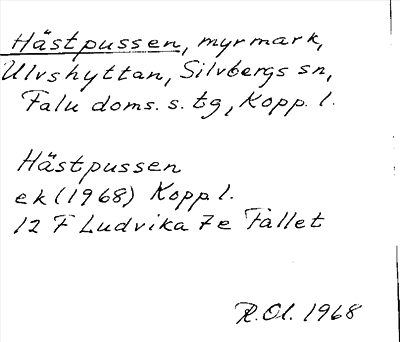 Hästpussen, myrmark,
Ulvshyttan, Silvbergs sn,
Falu doms. s. tg, Kopp. l.
Hästpussen
ek (1968) Kopp l.
12 F Ludvika 7e Fallet
R. Ol. 1968